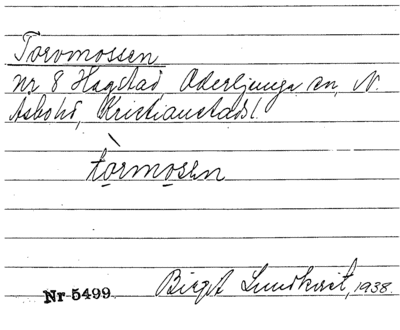 Torvmossen
nr 8 Hagstad Oderljunga sn, N.
Asbohd, Kristianstads l.
tòrmosen
Nr 5499. Birgit Lundkvist, 1938.